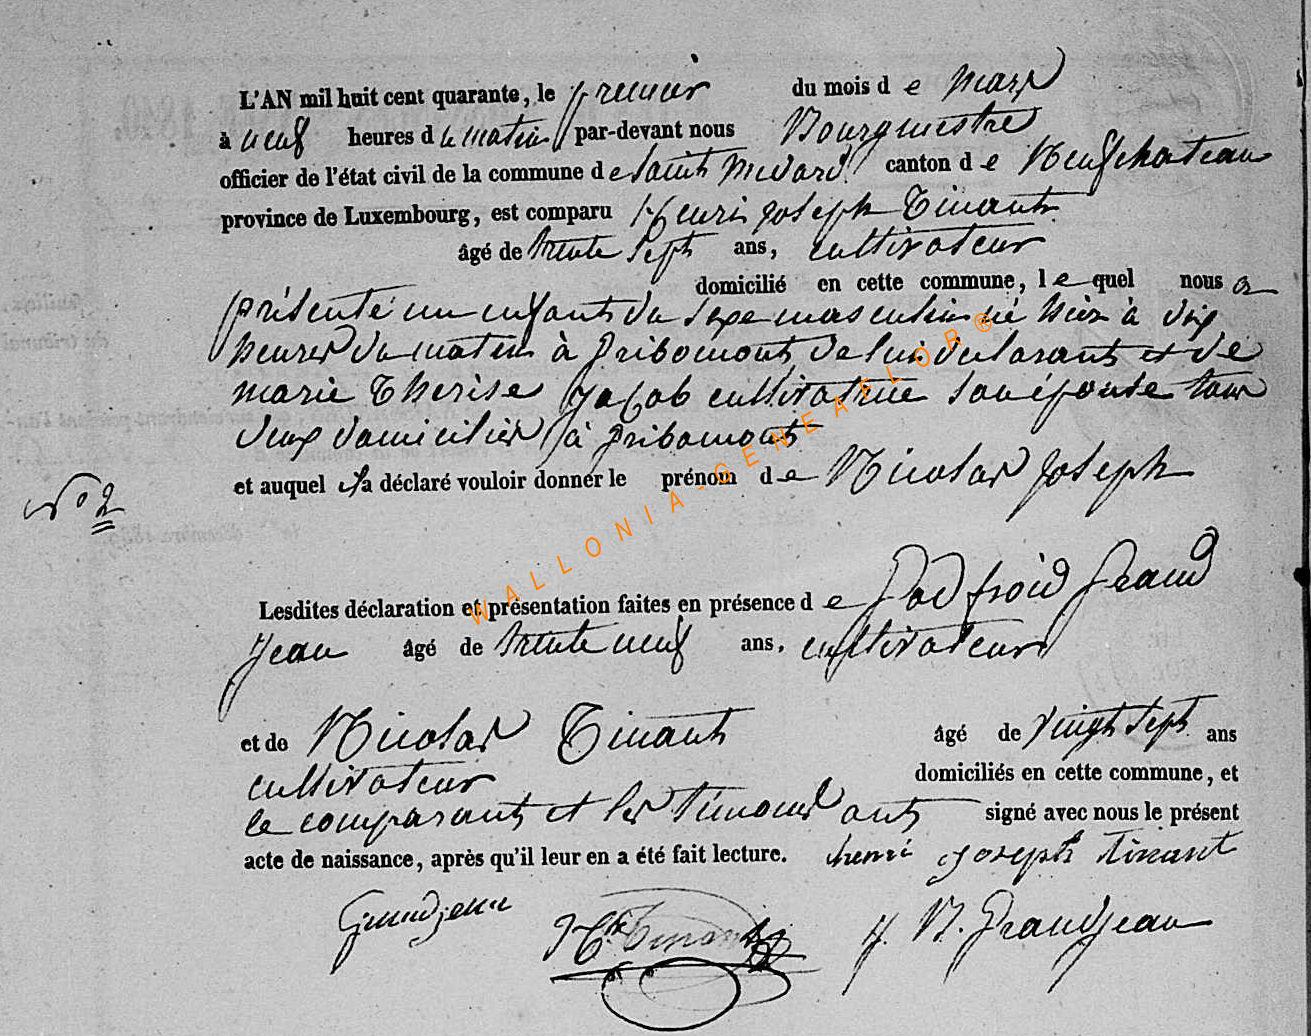 L'AN mil huit cent quarante, le premier du mois de mars
à neuf heures du matin par-devant nous Bourgmestre
officier de l'état civil de la commune de Saint Médard canton de Neufchateau
province de Luxembourg, est comparu Henri Joseph Tinant
âgé de trente sept ans, cultivateur
domicilié en cette commune, lequel nous a
présenté un enfant du sexe masculin né hier à dix
heures du matin à Gribomont de lui déclarant et de
marie Thérèse Jacob cultivatrice son épouse tous
deux domiciliés à Gribomont
et auquel il a déclaré vouloir donner le prénom de Nicolas Joseph
N° 2
Lesdites déclaration et présentation faites en présence de Godfroid Grand
Jean âgé de trente neuf ans, cultivateur
et de Nicolas Tinant âgé de vingt sept ans
cultivateur domiciliés en cette commune, et
le comparant et les témoins ont signé avec nous le présent
acte de naissance, après qu'il leur en a été fait lecture. henri joseph tinant
Grandjean Tinant J. N. Grandjean
WALLONIA-GENEAFLOR®